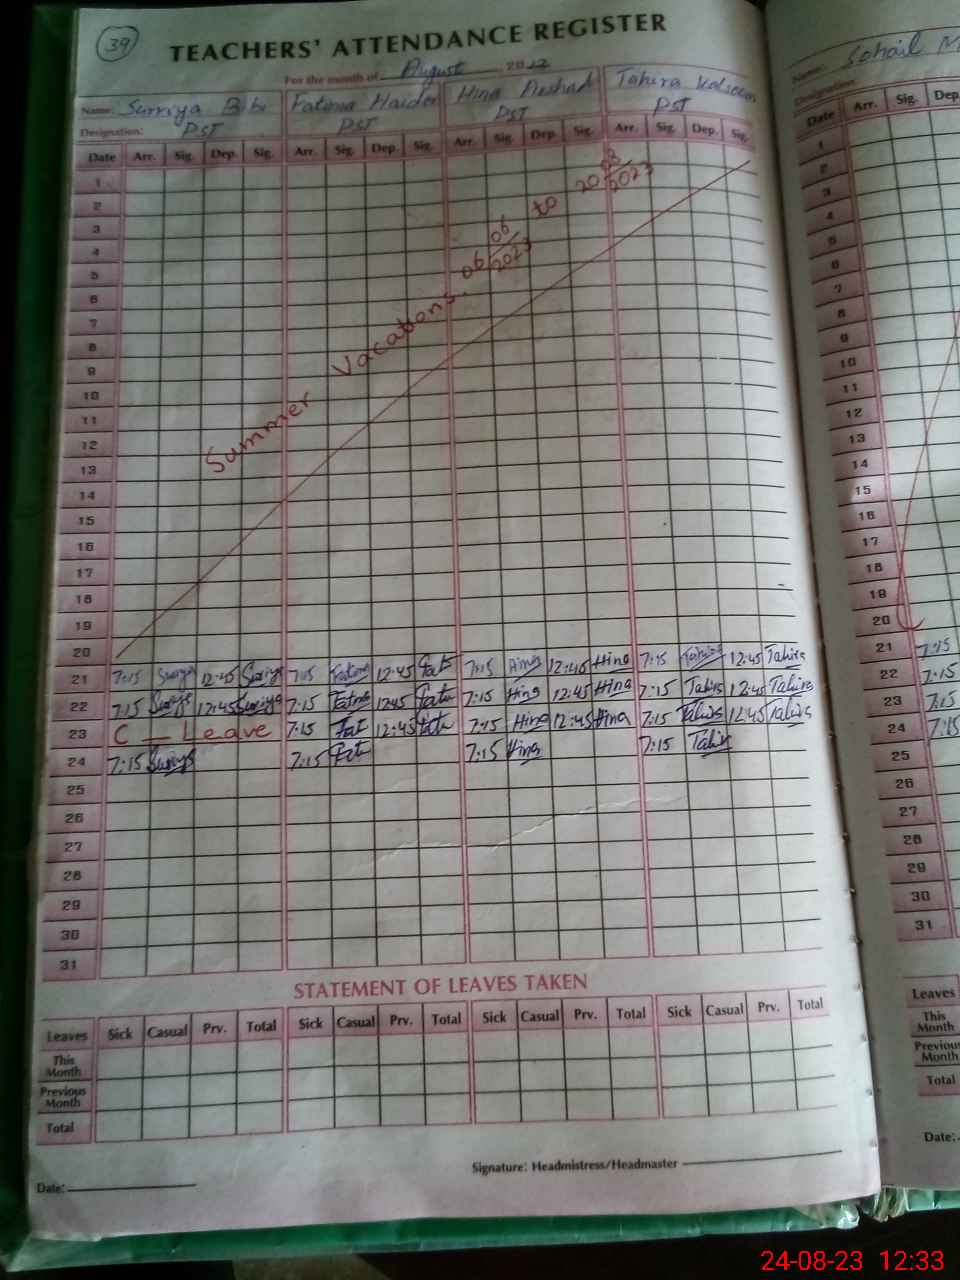 39
TEACHERS' ATTENDANCE REGISTER
For the month of August 20
Name: Surriya Bibi Fatima Haider Hina Tahira Kalsoom
Designation: PST PST PST PST
Date Arr. Sig. Dep. Sig. Arr. Sig. Dep. Sig. Arr. Sig. Dep. Sig. Arr. Sig. Dep. Sig.
1
2
3
4
5
6
7
8
9
10
11
12
13
14
15
16
17
18
19
20
Summer Vacations. 06 06/2023 to 20 08/2023
21 7:15 12:45 7:15 12:45 Fat 7:15 Hina 12:45 Hina 7:15 Tahira 12:45 Tahira
22 7:15 12:45 7:15 12:45 7:15 Hina 12:45 Hina 7:15 Tahira 12:45 Tahira
23 C — Leave 7:15 Fat 12:45 7:15 Hina 12:45 Hina 7:15 Tahira 12:45 Tahira
24 7:15 7:15 7:15 Hina 7:15
25
26
27
28
29
30
31
STATEMENT OF LEAVES TAKEN
Leaves Sick Casual Prv. Total Sick Casual Prv. Total Sick Casual Prv. Total Sick Casual Prv. Total
This Month
Previous Month
Total
Signature: Headmistress/Headmaster
Date:
Name: Sohail M
Designation:
Date Arr. Sig. Dep.
1
2
3
4
5
6
7
8
9
10
11
12
13
14
15
16
17
18
19
20
21 7:15
22 7:15
23 7:15
24 7:15
25
26
27
28
29
30
31
Leaves
This Month
Previous Month
Total
Date:
24-08-23 12:33